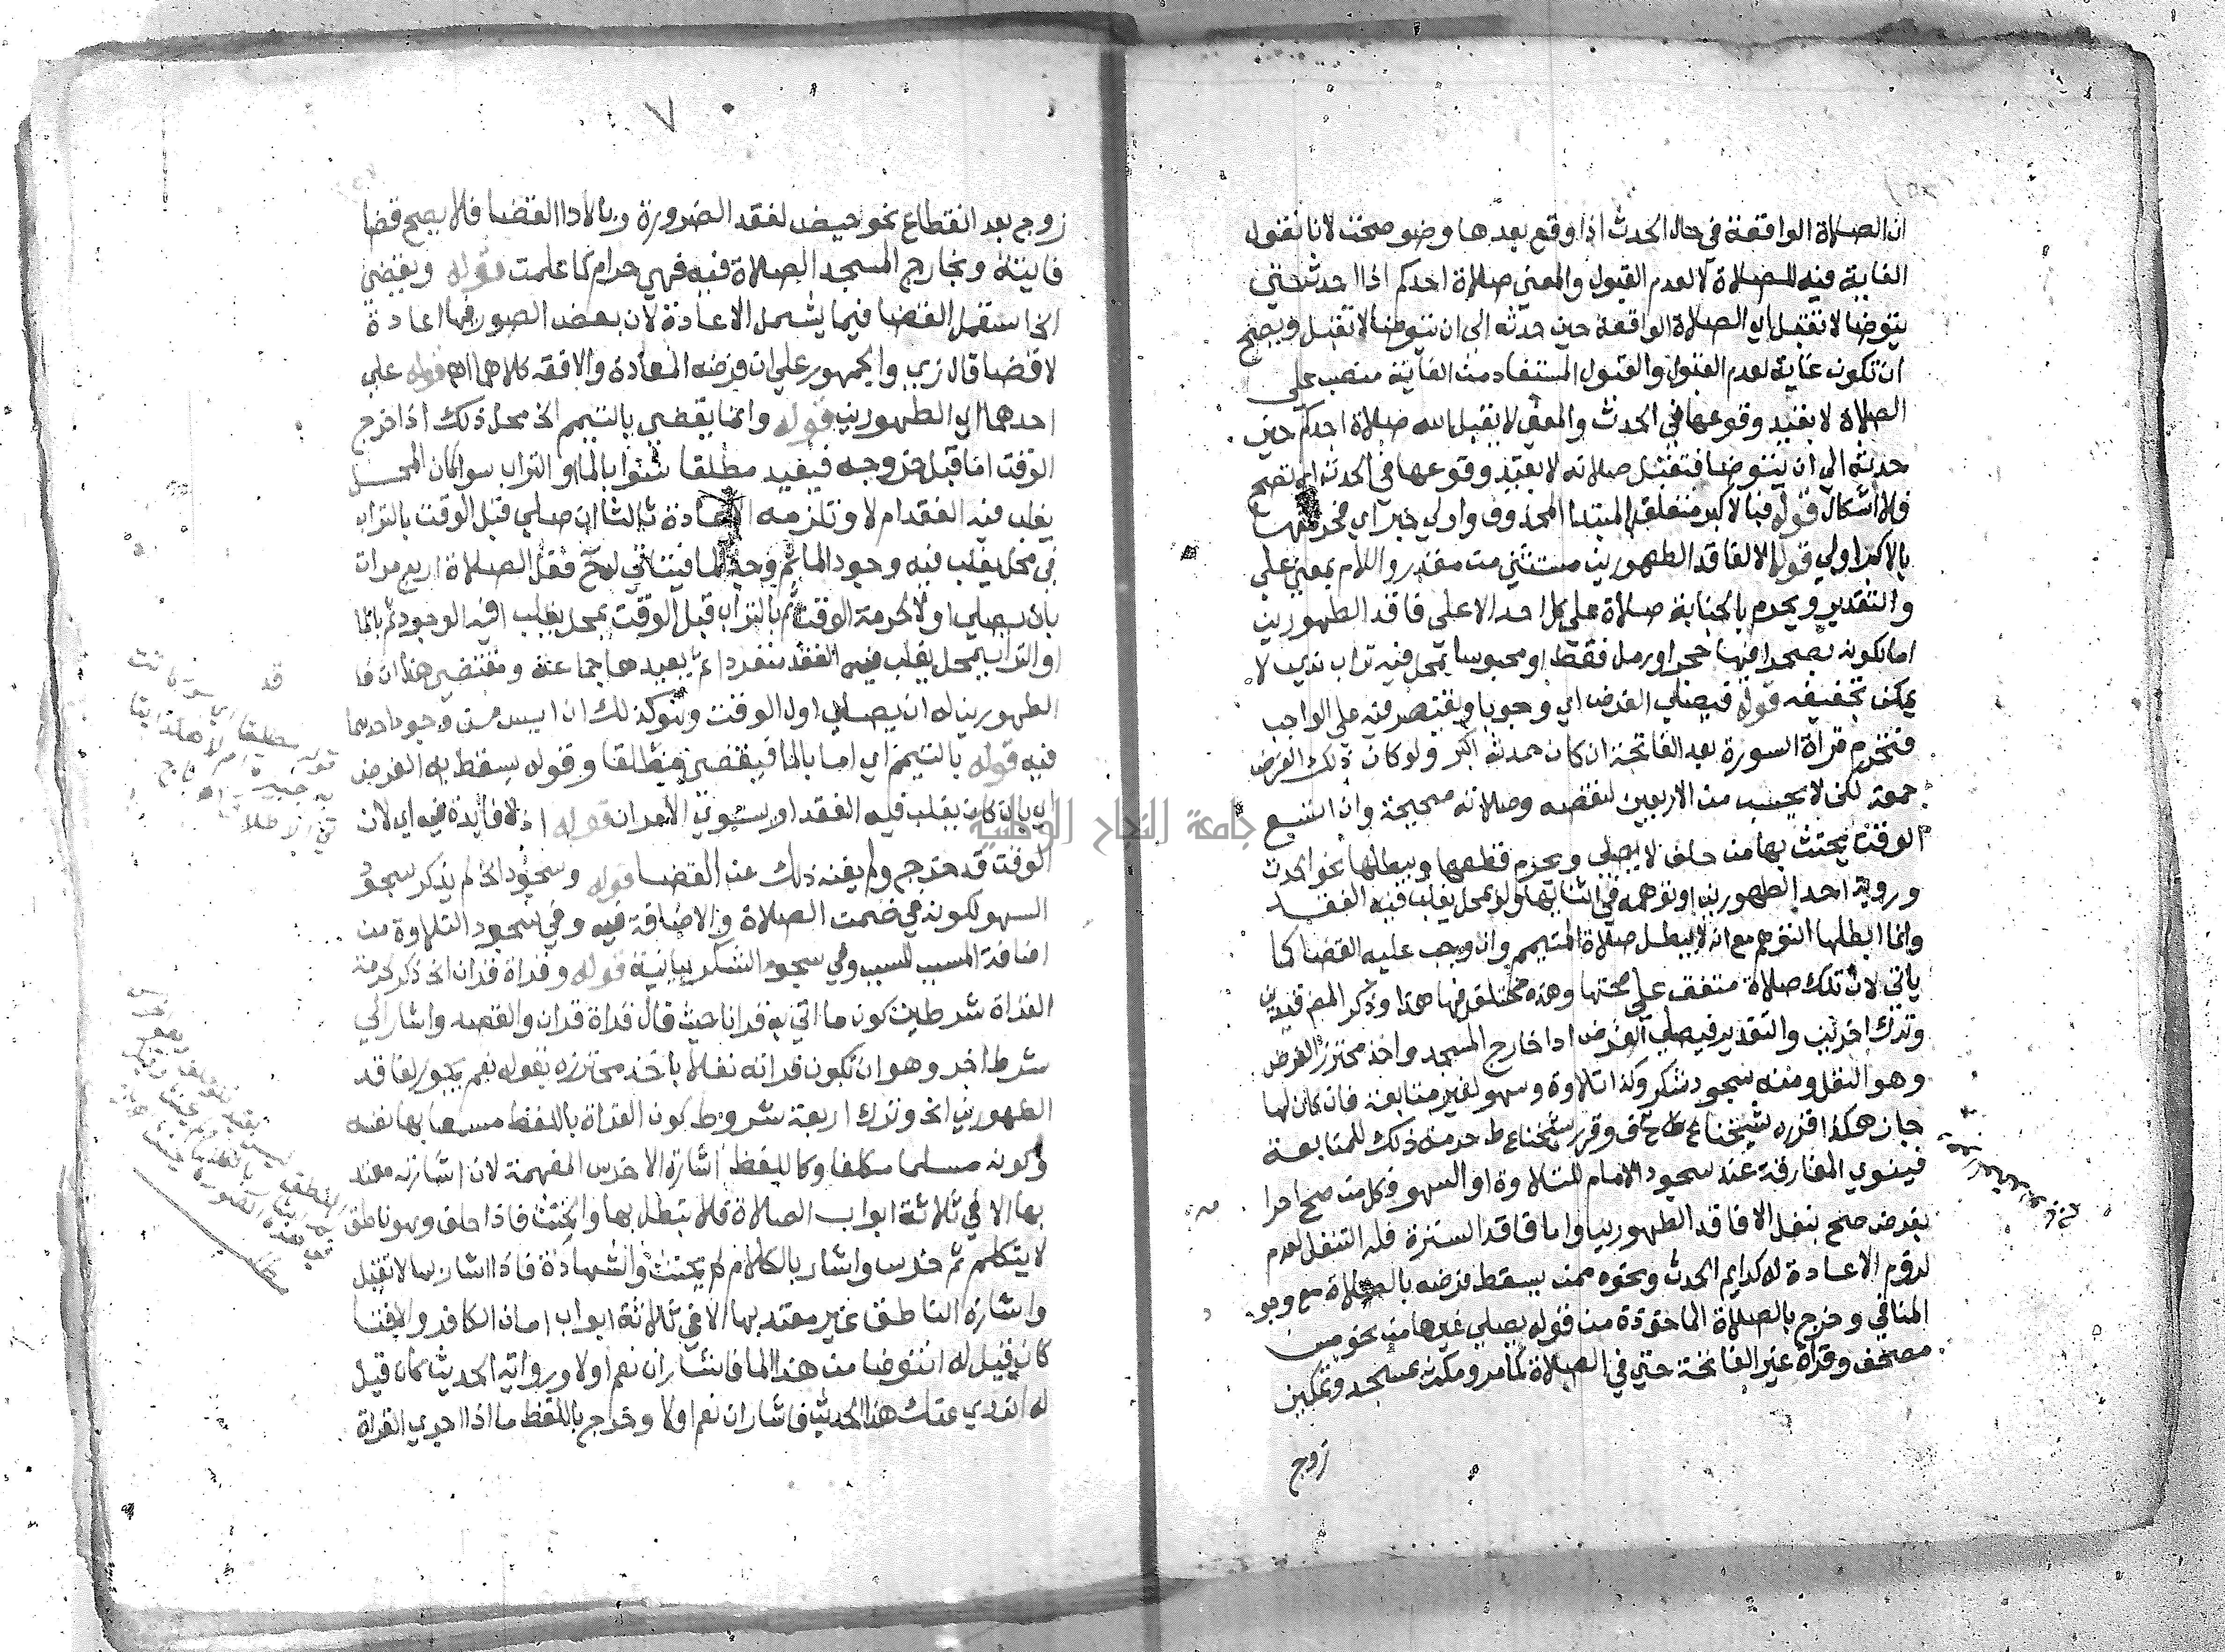 ان الصلاة الواقعة في حال الحدث اذا وقع بعدها وضو صحت لانا نقول
الغاية فيه للصلاة لا لعدم القبول والمعني صلاة احدكم اذا احدث حتي
يتوضا لا تقبل اي الصلاة الواقعة حين حدثه الي ان يتوضا لا تقبل ويصح
ان تكون غاية لعدم القبول والقبول المستفاد من الغاية منصب علي
الصلاة لا بقيد وقوعها في الحدث والمعني لا يقبل الله صلاة احدكم حين
حدثه الي ان يتوضا فتقبل صلاته لا بقيد وقوعها في الحدث اي تصح
فلا اشكال قوله فبالاكبر متعلق بالمبتدا المحذوف واولي خبر اي فحرمتها
بالاكبر اولي قوله الا لفاقد الطهورين مستثني من مقدر واللام بمعني علي
والتقدير ويحرم بالجنابة صلاة علي كل احد الا علي فاقد الطهورين
اما لكونه بصحرا فيها حجر او رمل فقط او محبوسا بمحل فيه تراب ندي لا
يمكن تجفيفه قوله فيصلي الفرض اي وجوبا ويقتصر فيه علي الواجب
فتحرم قراة السورة بعد الفاتحة ان كان حدثه اكبر ولو كان ذلك الفرض
جمعة لكن لا يحسب من الاربعين لنقصه وصلاته صحيحة وان اتسع
الوقت فيحنث بها من حلف لا يصلي ويحرم قطعها ويبطلها نحو الحدث
ورؤية احد الطهورين او توهمه في اثنايها ولو بمحل يغلب فيه الفقد
وانما ابطلها التوهم مع انه لا يبطل صلاة المتيمم وان وجب عليه القضا كما
ياتي لان تلك صلاة متفق علي صحتها وهذه مختلف فيها هذا وذكر المص قيدين
وترك اخرين والتقدير فيصلي الفرض ادا خارج المسجد واخذ محترز الفرض
وهو النفل ومنه سجود شكر وكذا تلاوة وسهو لغير متابعة فان كان لها
جاز هكذا قرره شيخنا وقرر شيخنا حرمة ذلك للمتابعة
فينوي المفارقة عند سجود الامام للتلاوة او السهو وكل من صح احرا
بفرض صح بنفل الا فاقد الطهورين واما فاقد السترة فله التنفل لعدم
لزوم الاعادة له كدايم الحدث ونحوه ممن يسقط فرضه بالصلاة مع وجو
المنافي وخرج بالصلاة الماخوذة من قوله يصلي غيرها من نحو مس
مصحف وقراة غير الفاتحة حتي في الصلاة كما مر ومكث بمسجد وتمكين
زوج
٧
زوج بعد انقطاع نحو حيض لفقد الضرورة وبالادا القضا فلا يصح قضا
فايتة وبخارج المسجد الصلاة فيه فهي حرام كما علمت قوله ويقضي
الخ استعمل القضا فيما يشمل الاعادة لان بعض الصور فيها اعادة
لا قضا قال زي والجمهور علي ان فرضه المعادة والافقه كلاهما اهـ قوله علي
احدهما اي الطهورين قوله وانما يقضي بالتيمم الخ محل ذلك اذا خرج
الوقت اما قبل خروجه فيعيد مطلقا سوا بالما او التراب سوا كان المحل
يغلب فيه الفقد ام لا وتلزمه الاعادة ثالثا ان صلي قبل الوقت بالتراب
في محل يغلب فيه وجود الما ثم وجد الما فيتاتي فعل الصلاة اربع مرات
بان يصلي اولا لحرمة الوقت ثم بالتراب قبل الوقت بمحل يغلب فيه الوجود ثم بالما
او التراب بمحل يغلب فيه الفقد منفردا ثم يعيدها جماعة ومقتضي هذا ان فا
الطهورين له ان يصلي اول الوقت وهو كذلك ان ايس من وجود احدهما
فيه قوله بالتيمم اي اما بالما فيقضي مطلقا وقوله يسقط به الفرض
اي بان كان يغلب فيه الفقد او يستوي الامران قوله اذ لا فايدة فيه اي لان
الوقت قد خرج ولم يغنه ذلك عن القضا قوله وسجود الخ لم يذكر سجود
السهو لكونه في ضمن الصلاة والاضافة فيه وفي سجود التلاوة من
اضافة المسبب للسبب وفي سجود الشكر بيانية قوله وقراة قران الخ ذكر لحرمة
القراة شرطين كون ما اتي به قرانا حيث قال قراة قران والقصد واشار الي
شرط اخر وهو ان تكون قراته نفلا باخذ محترزه بقوله نعم يجوز لفاقد
الطهورين الخ وترك اربعة شروط كون القراة باللفظ مسمعا بها نفسه
وكونه مسلما مكلفا وكاللفظ اشارة الاخرس المفهمة لان اشارته معتد
بها الا في ثلاثة ابواب الصلاة فلا تبطل بها والحنث فاذا حلف وهو ناطق
لا يتكلم ثم خرس واشار بالكلام لم يحنث والشهادة فاذا اشار بها لا تقبل
واشارة الناطق غير معتد بها الا في ثلاثة ابواب امان الكافر والافتا
كان قيل له انتوضا من هذا الما فاشار ان نعم او لا ورواية الحديث كان قيل
له انروي عنك هذا الحديث فاشار ان نعم او لا وخرج باللفظ ما اذا اجري القراة
جامعة النجاح الوطنية